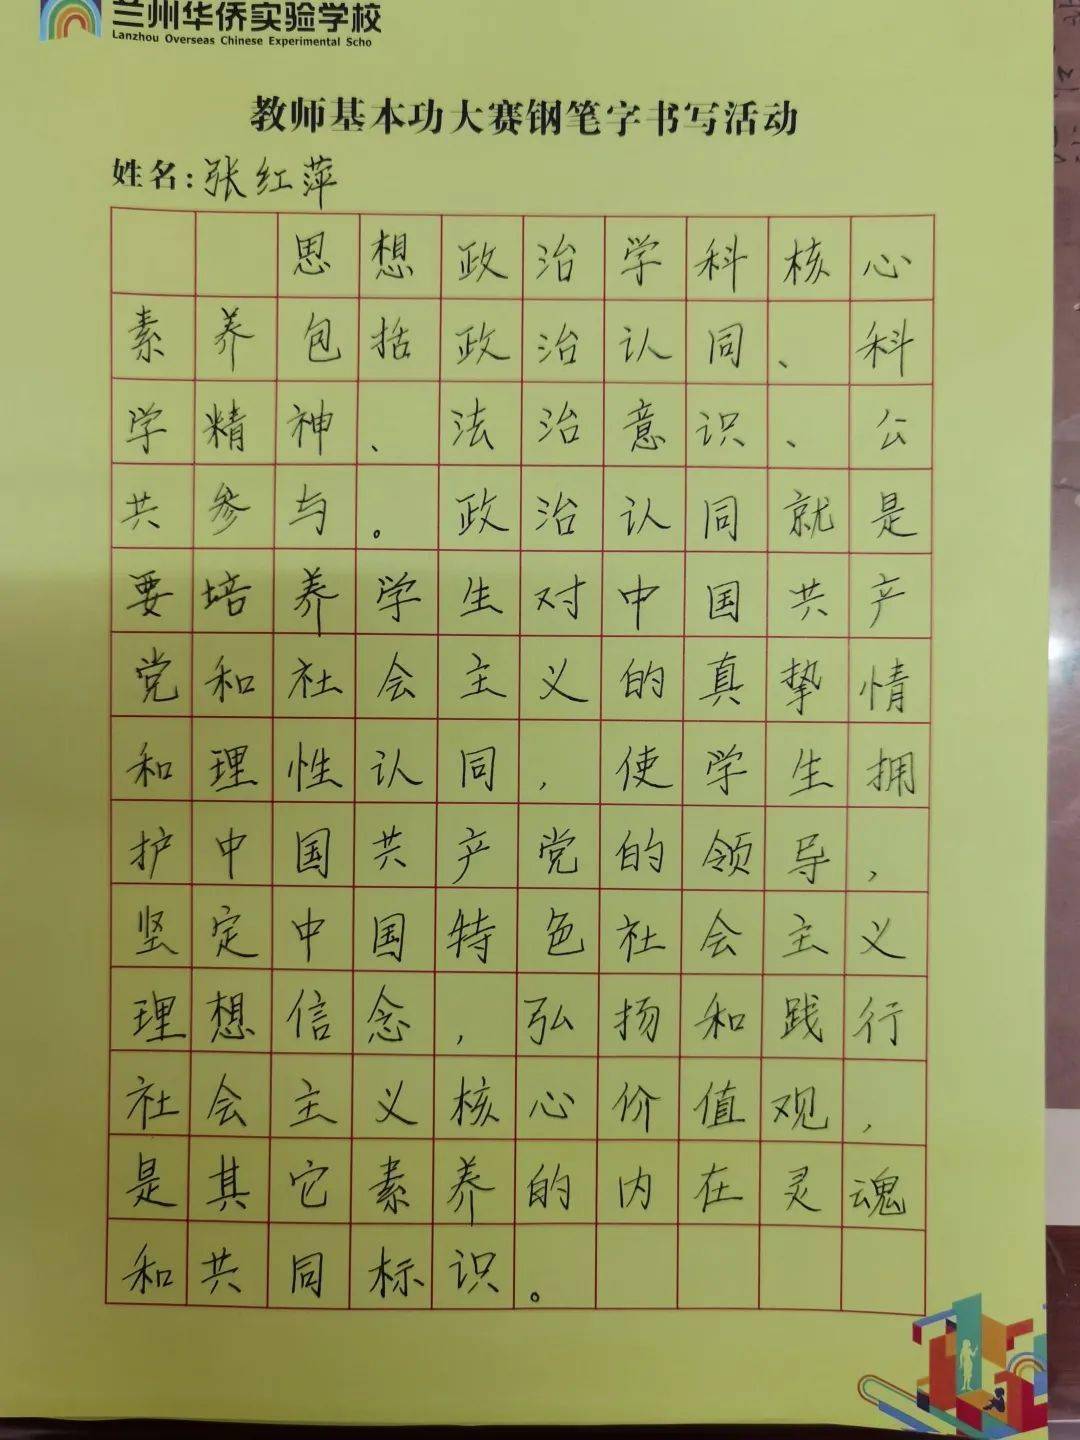 兰州华侨实验学校
Lanzhou Overseas Chinese Experimental Scho
教师基本功大赛钢笔字书写活动
姓名:张红萍
思想政治学科核心
素养包括政治认同、科
学精神、法治意识、公
共参与。政治认同就是
要培养学生对中国共产
党和社会主义的真挚情
和理性认同,使学生拥
护中国共产党的领导,
坚定中国特色社会主义
理想信念,弘扬和践行
社会主义核心价值观,
是其它素养的内在灵魂
和共同标识。